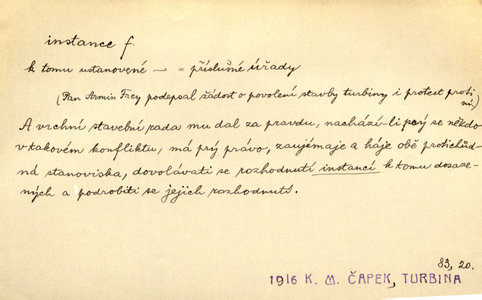 instance f.
k tomu ustanovené — = příslušné úřady
(Pan Armin Frey podepsal žádost o povolení stavby turbiny i protest proti
ní)
A vrchní stavební rada mu dal za pravdu, nachází-li prý se někdo
v takovém konfliktu, má prý právo, zaujímaje a háje obě protichůd-
ná stanoviska, dovolávati se rozhodnutí instancí k tomu dosaze-
ných a podrobiti se jejich rozhodnutí.
83, 20.
1916 K. M. ČAPEK, TURBINA